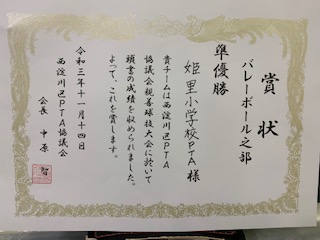 賞状
バレーボール之部
準優勝
姫里小学校PTA様
貴チームは西淀川区PTA
協議会親善球技大会に於いて
頭書の成績を収められました。
よって、これを賞します。
令和三年十一月十四日
西淀川区PTA協議会
会長 中原